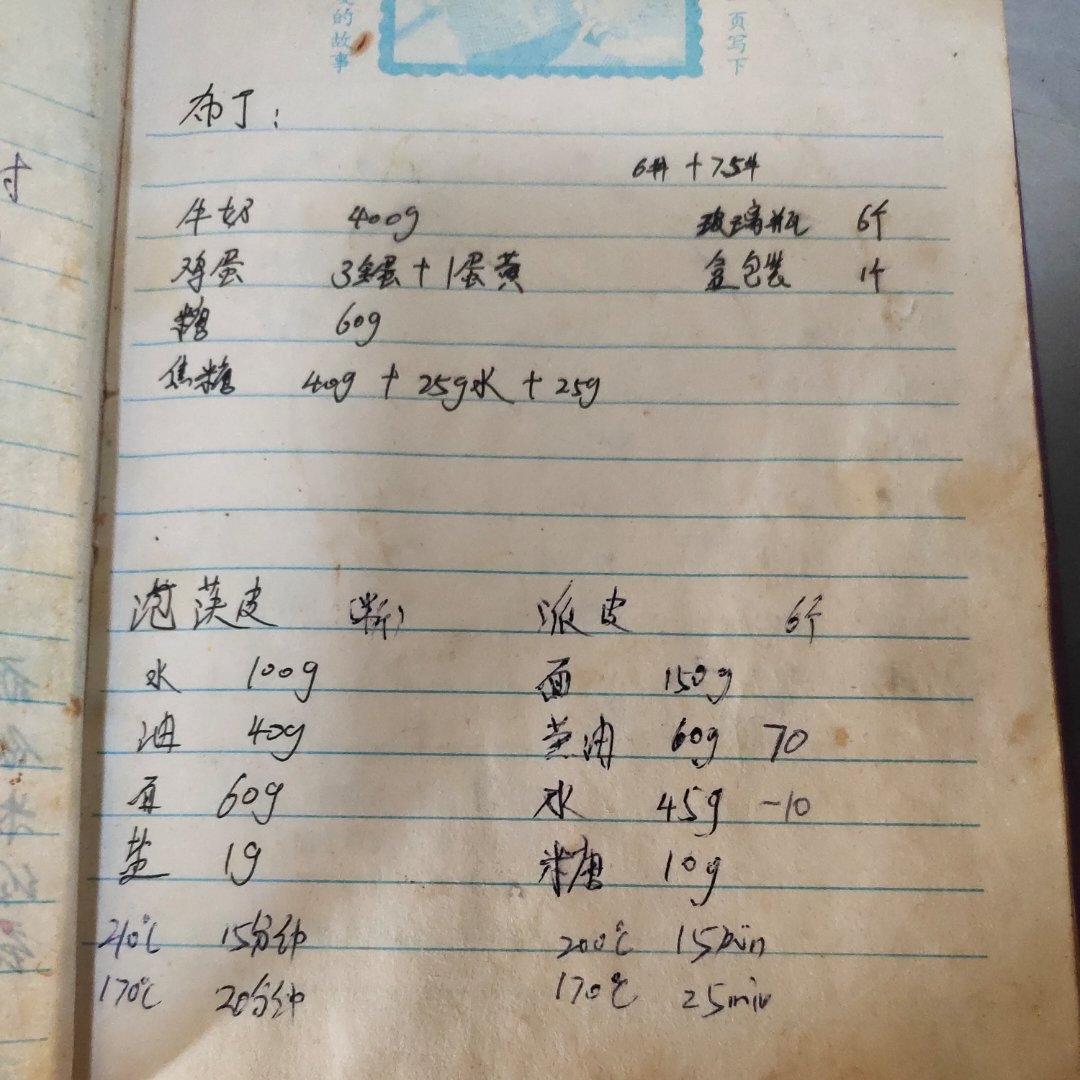 的故事
页写下
布丁：
牛奶 400g 玻璃瓶 6个
鸡蛋 3全蛋+1蛋黄 盒包装 1个
糖 60g
焦糖 40g + 25g水 + 25g
泡芙皮 派皮 6个
水 100g 面 150g
油 40g 黄油 60g 70
面 60g 水 45g -10
盐 1g 糖 10g
210℃ 15分钟 200℃ 15min
170℃ 20分钟 170℃ 25min